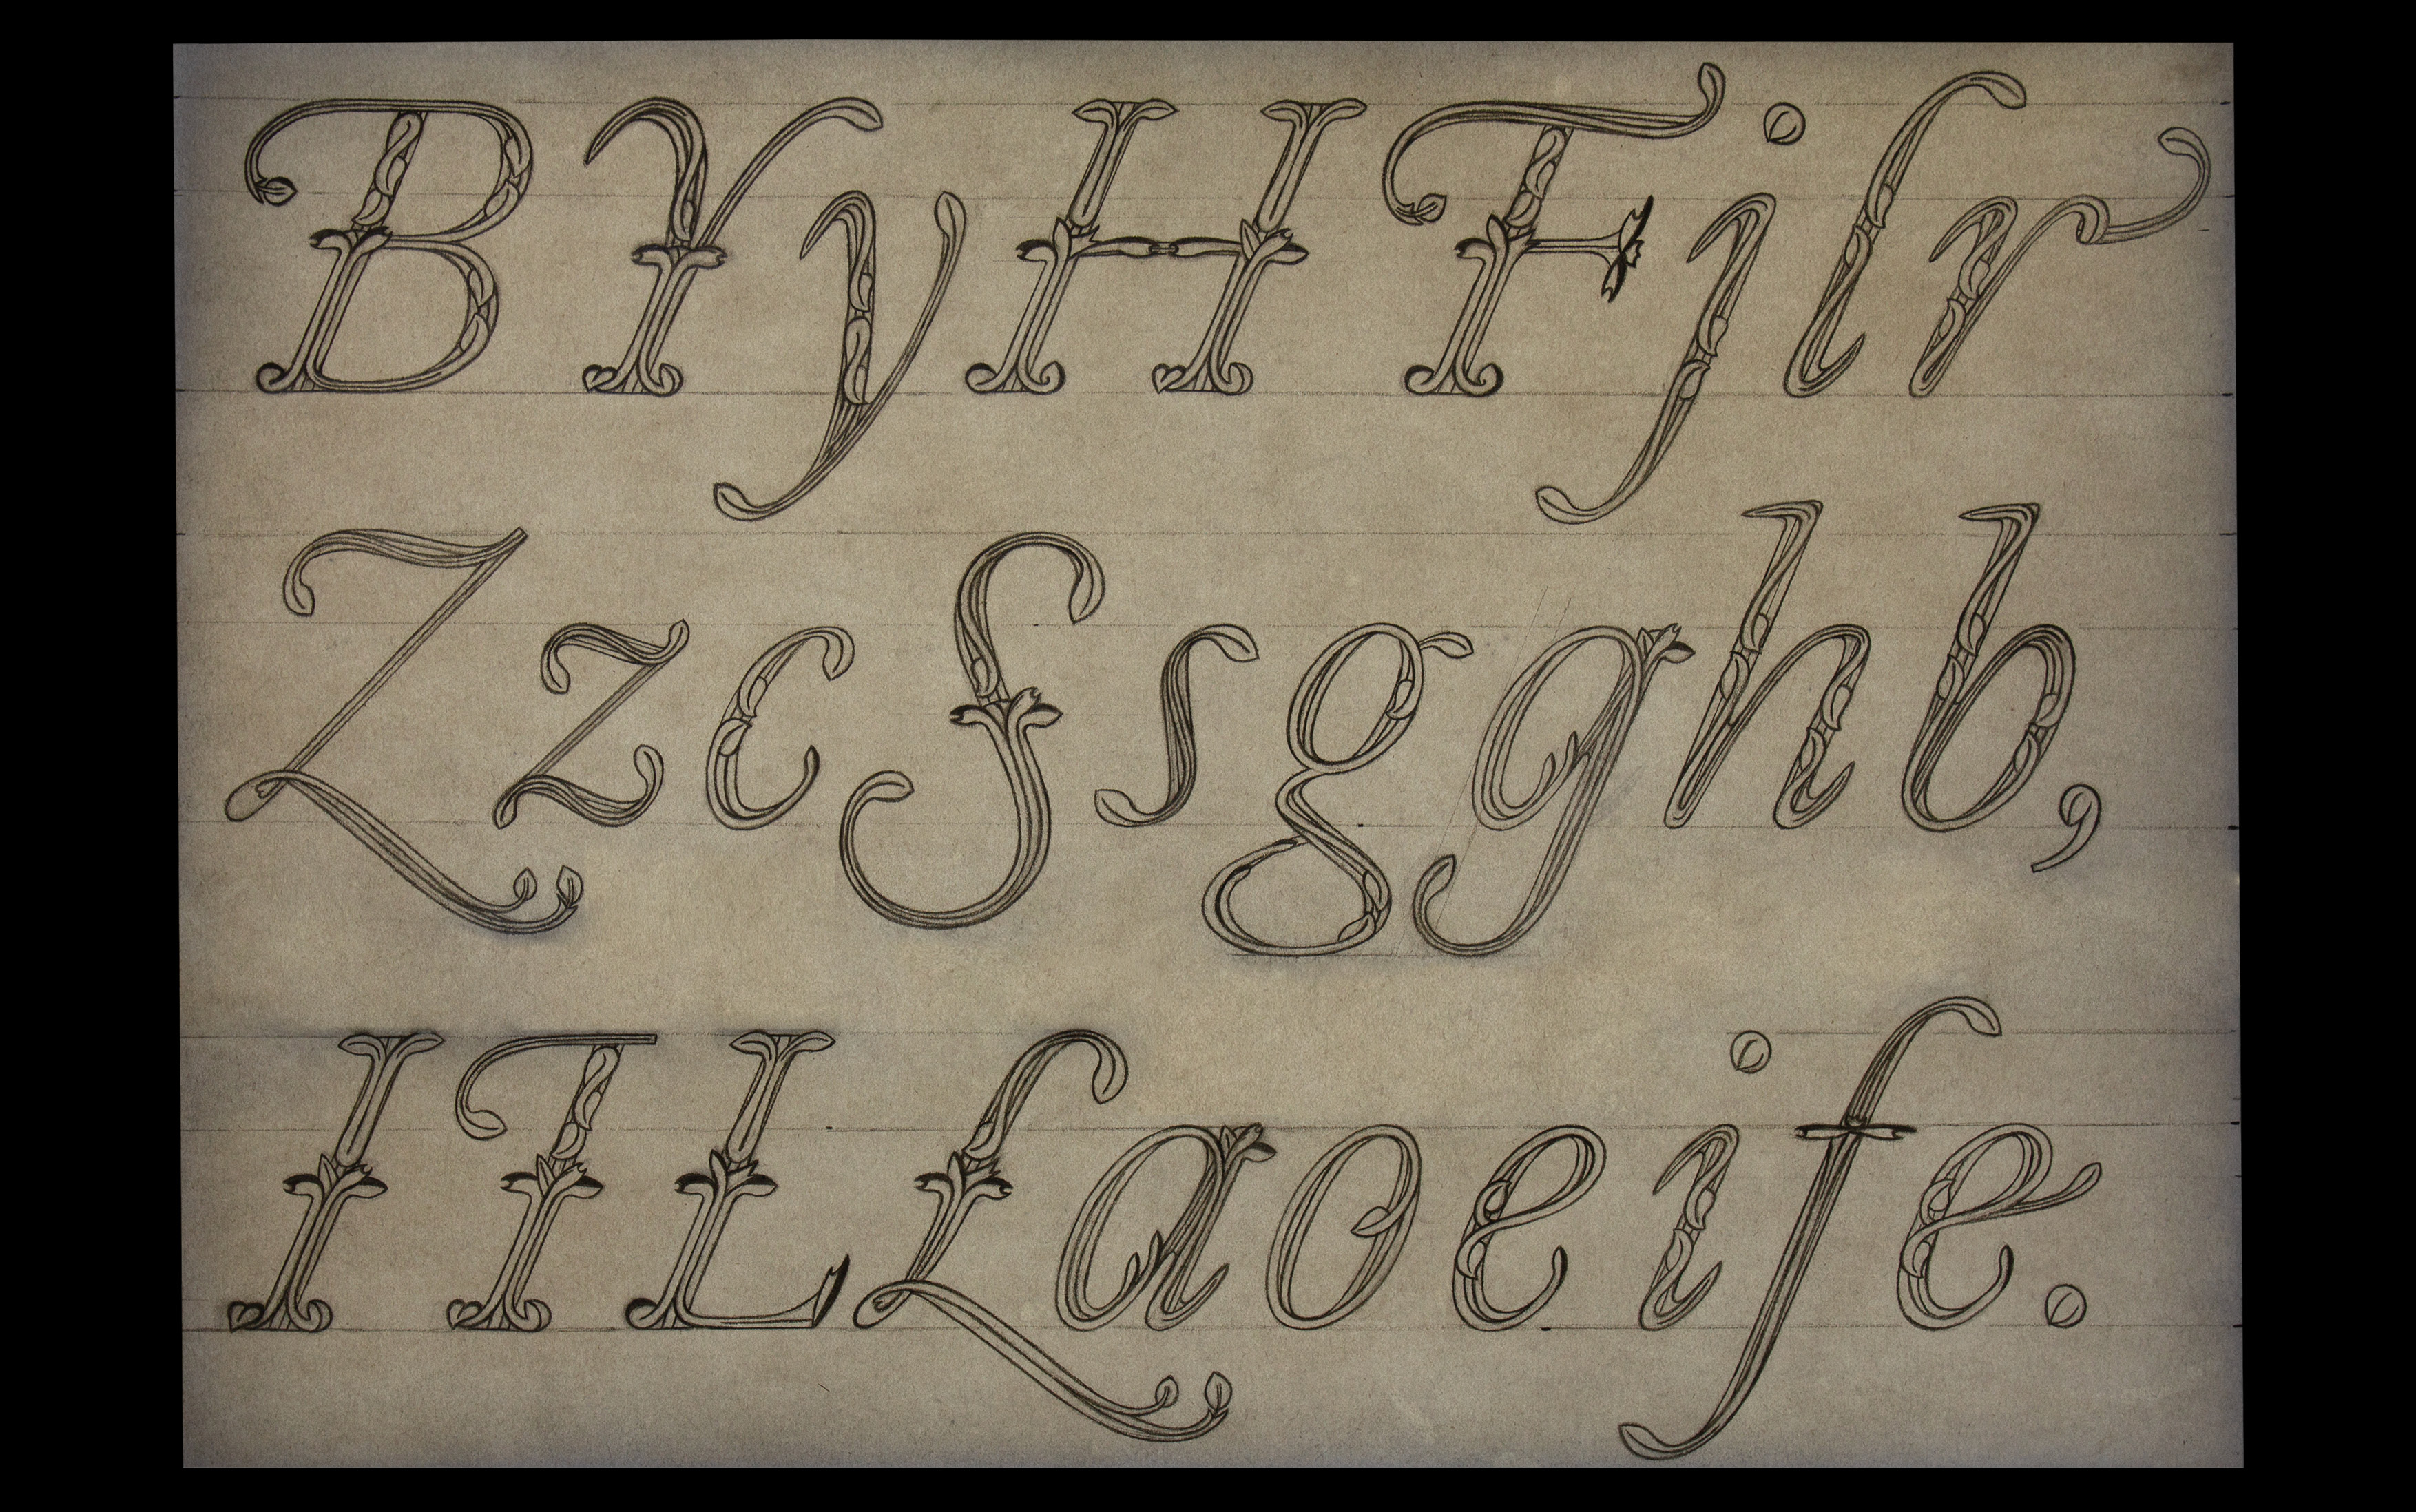 B Y y H F j l r
Z z c S s g g h b ,
I T L L a o e i f e .